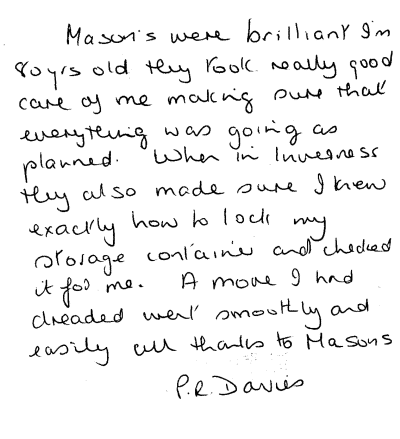 Mason's were brilliant I'm
80yrs old they took really good
care of me making sure that
everything was going as
planned. When in Inverness
they also made sure I knew
exactly how to lock my
storage container and checked
it for me. A move I had
dreaded went smoothly and
easily all thanks to Masons
P.R. Davies